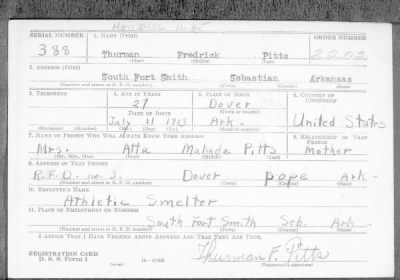 SERIAL NUMBER 1. NAME (Print) ORDER NUMBER
388 Thurman Fredrick Pitts 2202
(First) (Middle) (Last)
2. ADDRESS (Print)
South Fort Smith Sebastian Arkansas
(Number and street or R. F. D. number) (Town) (County) (State)
3. TELEPHONE 4. AGE IN YEARS 5. PLACE OF BIRTH 6. COUNTRY OF CITIZENSHIP
27 Dover
DATE OF BIRTH (Town or county)
July 11 1913 Ark- United States
(Exchange) (Number) (Mo.) (Day) (Yr.) (State or country)
7. NAME OF PERSON WHO WILL ALWAYS KNOW YOUR ADDRESS 8. RELATIONSHIP OF THAT PERSON
Mrs. Atta Malinde Pitts Mother
(Mr., Mrs., Miss) (First) (Middle) (Last)
9. ADDRESS OF THAT PERSON
R.F.D- no-3. Dover pope Ark-
(Number and street or R. F. D. number) (Town) (County) (State)
10. EMPLOYER'S NAME
Athletic Smelter
11. PLACE OF EMPLOYMENT OR BUSINESS
South Fort Smith Seb. Ark
(Number and street or R. F. D. number) (Town) (County) (State)
I AFFIRM THAT I HAVE VERIFIED ABOVE ANSWERS AND THAT THEY ARE TRUE.
REGISTRATION CARD
D. S. S. FORM 1 Thurman F. Pitts
(over) (Registrant's signature)